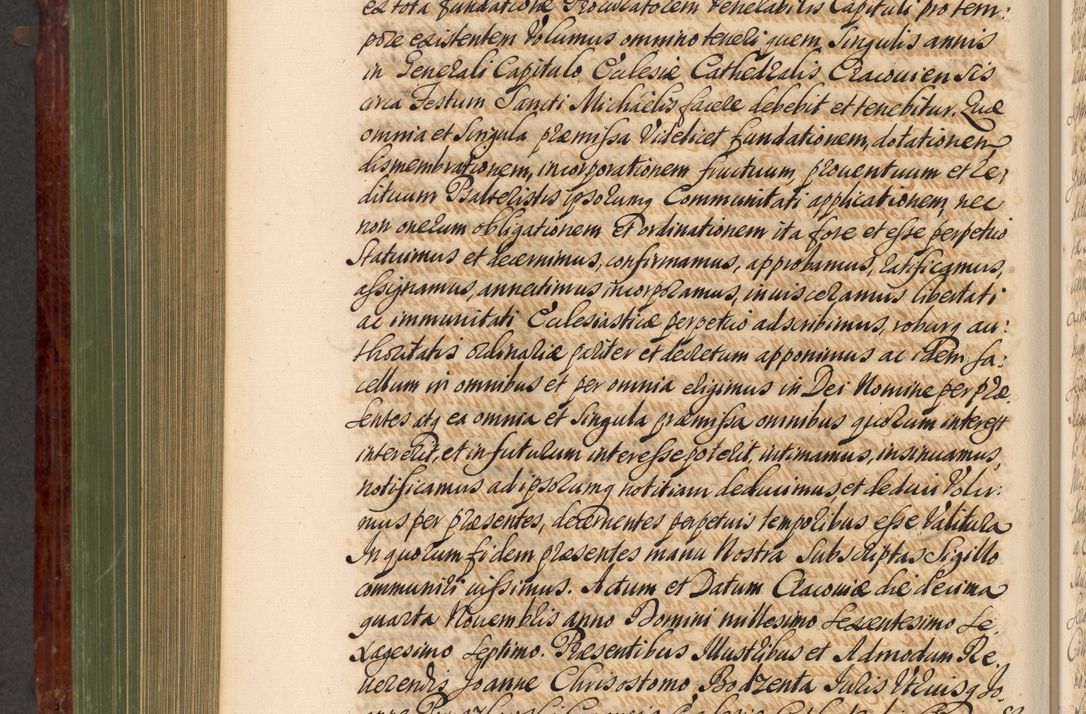 ex tota fundatione Procuratorem Venerabilis Capituli pro tem:
pore existentem Volumus omnino teneri quem Singulis annis
in Generali Capitulo Ecclesiæ Cathedralis Cracoviensis
circa Festum Sancti Michaëlis facere debebit et tenebitur. Quæ
omnia et Singula præmissa Videlicet fundationem, dotationem
dismembrationem, incorporationem fructuum, proventuum et re,
dituum Psalteristis ipsorumq Communitati applicationem, nec
non onerum obligationem et ordinationem ita fore et esse perpetuo
Statuimus et decernimus, confirmamus, approbamus, ratificamus,
assignamus, annectimus incorporamus, invisceramus libertati
ac immunitati Ecclesiasticæ perpetuo adscribimus, roburq au:
thoritatis ordinariæ pariter et decretum apponimus ac idem sa:
cellum in omnibus et per omnia erigimus in Dei Nomine per præ
sentes atq ea omnia et Singula præmissa omnibus quorum interest
intererit, et in futurum interesse poterit, intimamus, insinuamus,
notificamus ad ipsorumq notitiam deducimus, et deduci Volu:
mus per præsentes, decernentes perpetuis temporibus esse Valitura
In quorum fidem præsentes manu Nostra Subscriptas Sigillo
communiri iussimus. Actum et Datum Cracoviæ die decima
quarta Novembris anno Domini millesimo Sexentesimo Se,
xagesimo Septimo. Præsentibus Illustribus et Admodum Re,
verendis Joanne Chrisostomo Bodzenta Juris Utriusq Jo